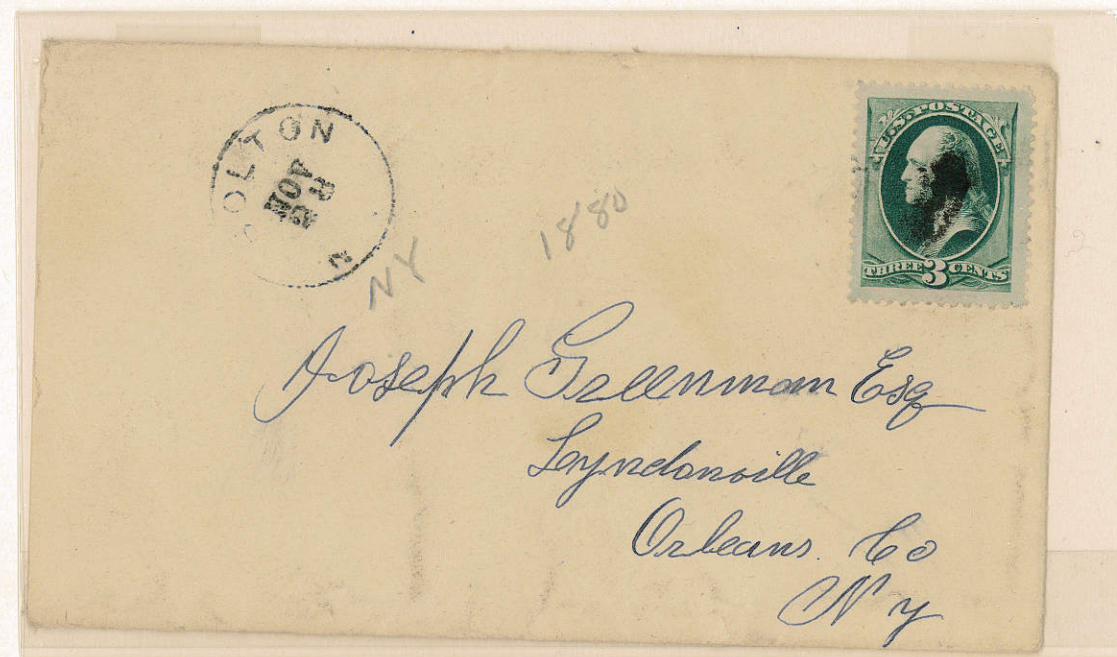 OLTON
NOV
NY
1880
U.S. POSTAGE
THREE 3 CENTS
Joseph Greenman Esq
Lyndonville
Orleans. Co
N Y